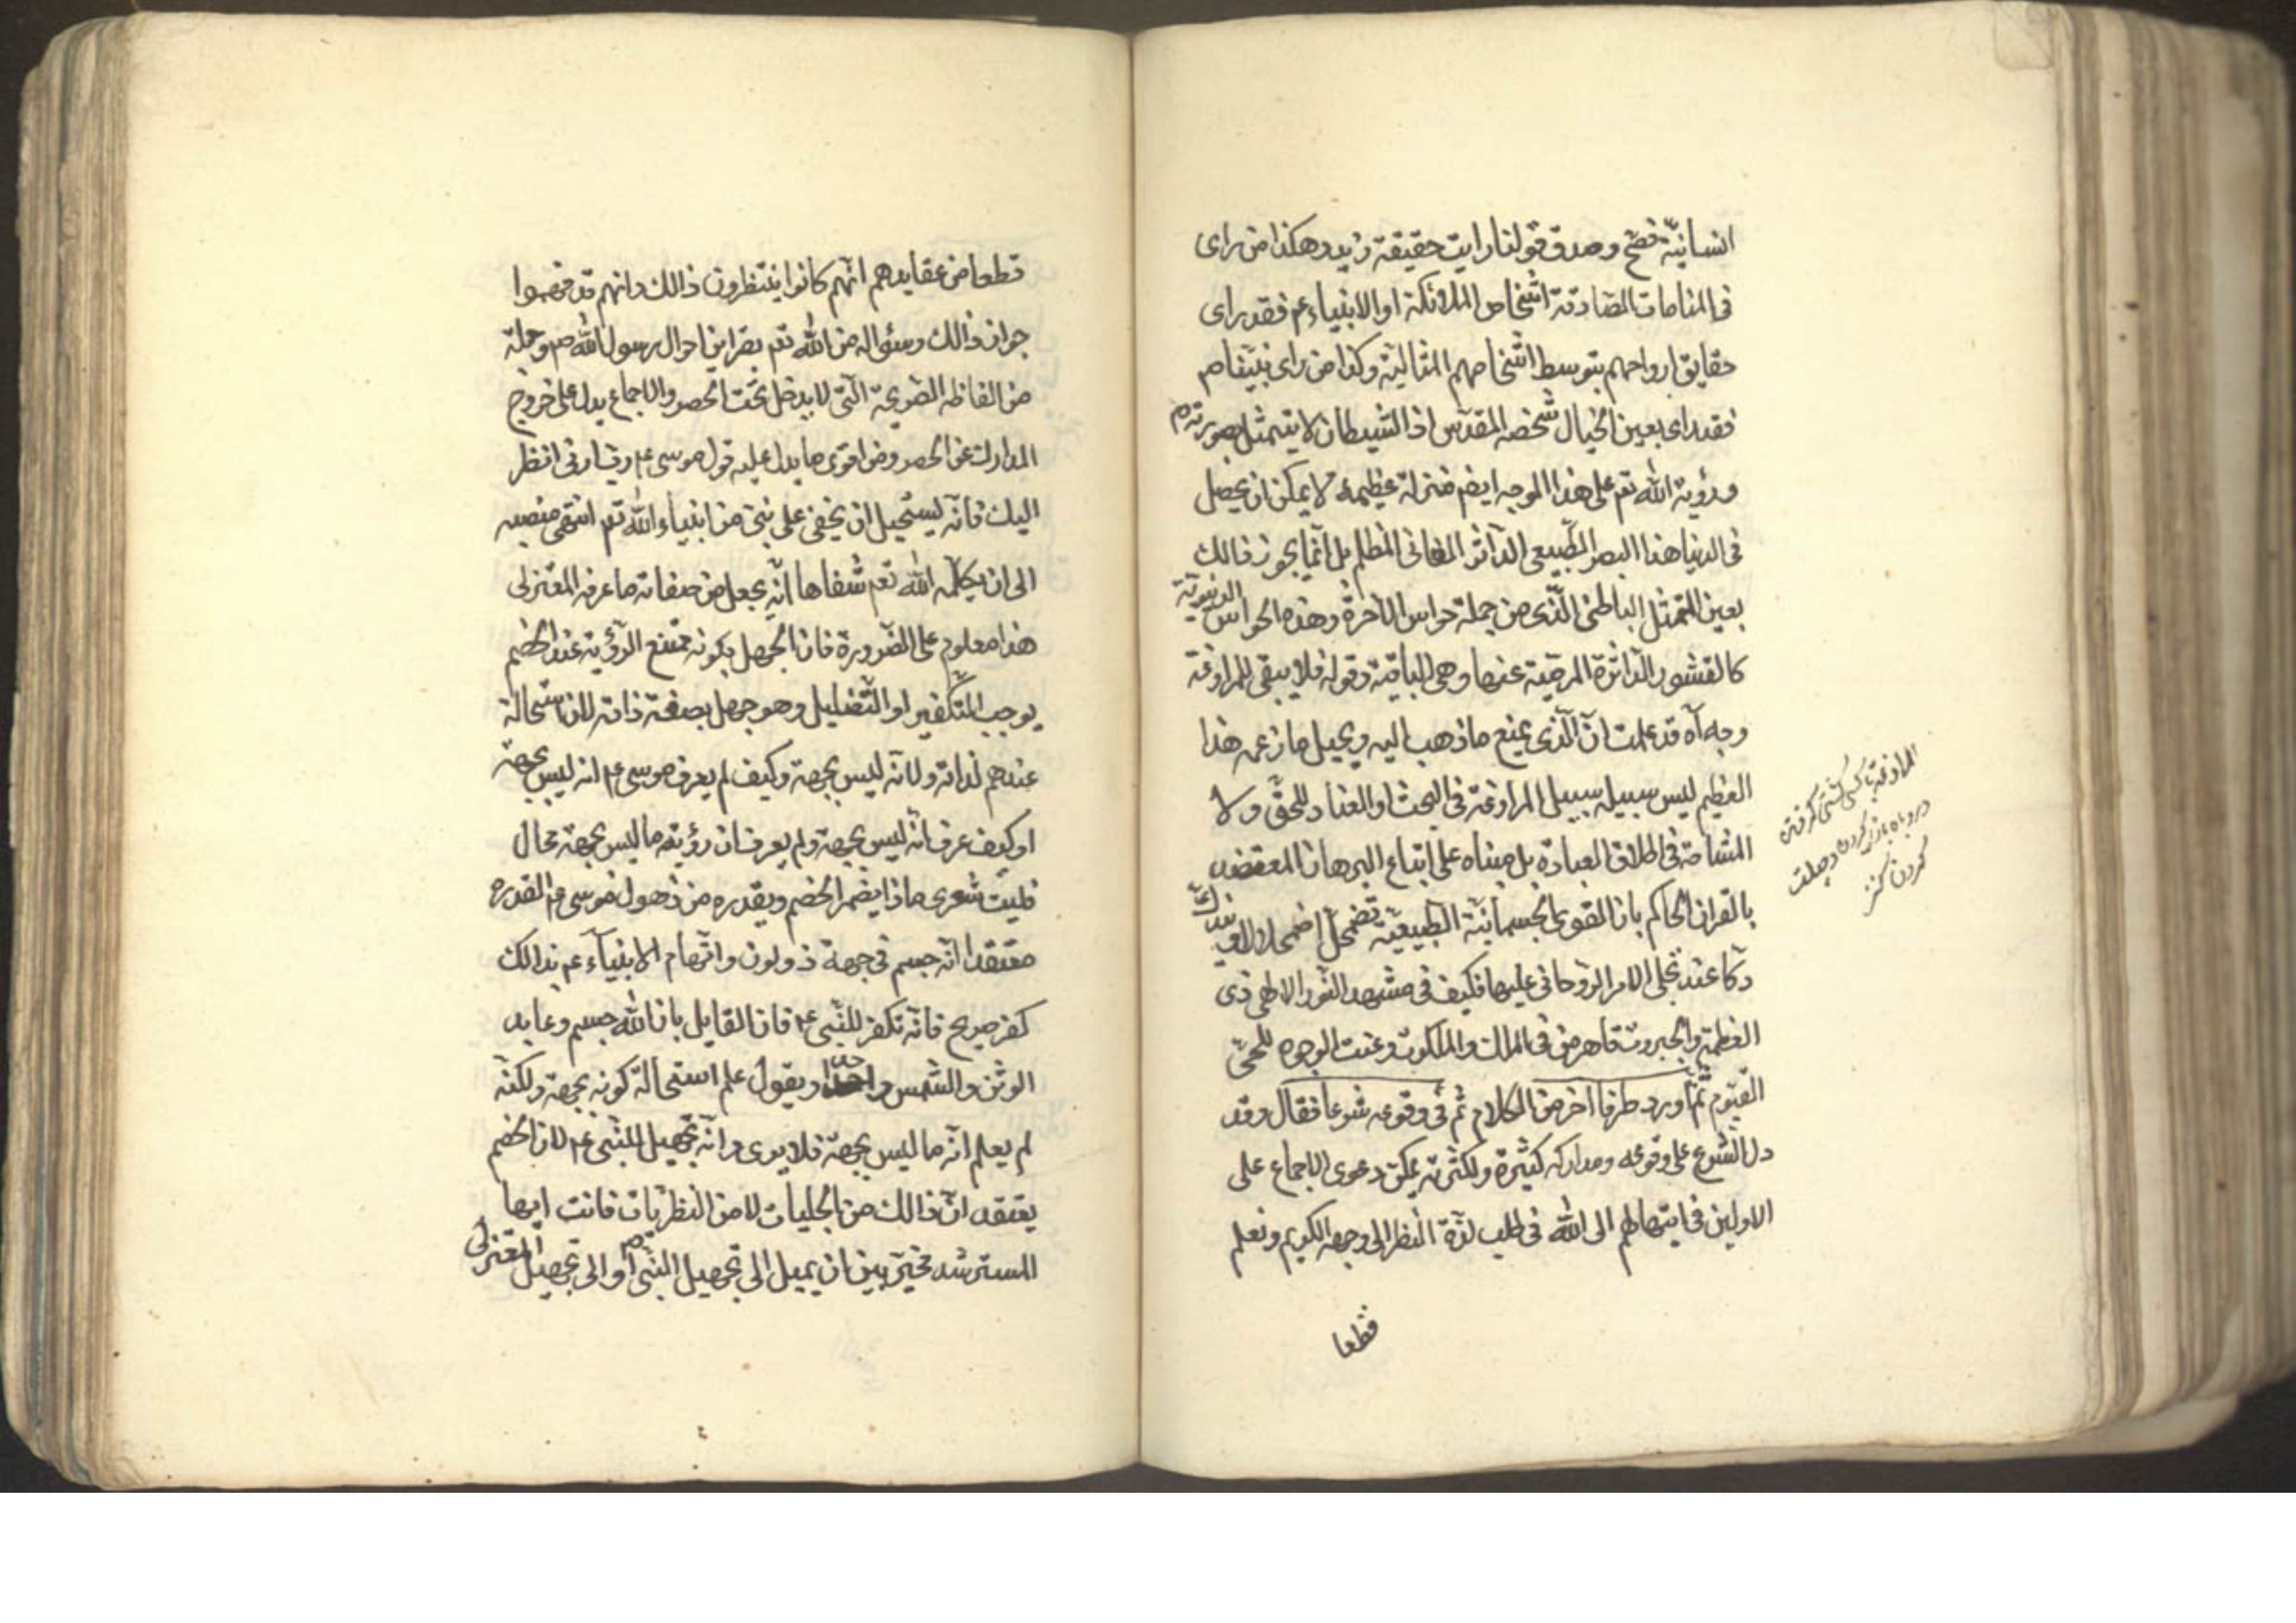 انسانيّة فصّح وصدق قولنا رايت حقيقة زيد وهكذا من راى
فى المنامات الصّادقة اشخاص الملائكة او الانبياء عم فقد راى
حقايق ارواحهم بتوسط اشخاصهم المثاليّة وكذا من راى نبيّنا ص
فقد راى بعين الخيال شخصه المقدّس اذ الشيطان لا يتمثل بصورته م
ورؤية الله تعم على هذا الوجه ايضم منزلة عظيمة لا يمكن ان يحصل
فى الدنيا هذا البصر الطّبيعى الدّاثر الفانى المظلم بل انّما يجوز ذالك
بعين التمثل الباطنى الّذى من جملة حواس الآخرة وهذه الحواس الدنيويّة
كالقشور الدّاثرة المرميّة عنها وهى الباقية وقوله فلا يبقى للمراوغة
وجه آه قد علمت انّ الّذى يمنع ما ذهب اليه ويحيل ما زعمه هذا
العظيم ليس سبيله سبيل المراوغة فى البحث او العناد للحقّ ولا
المشاحة فى اطلاق العبادة بل مبناه على اتباع البرهان المعتضد
بالقران الحاكم بان القوى الجسمانيّة الطّبيعيّة تضمحلّ اضمحلالا ويندكّ
دكا عند تجلى الامر الرّوحانى عليها فكيف فى مشهد النّور الالهى ذى
العظمة والجبروت قاهر من فى الملك والملكوت وعنت الوجوه للحىّ
القيّوم ثمّ اورد طرفا اخر من الكلام ثمّ فى وقوعه شرعا فقال وقد
دل الشّرع على وقوعه ومداركه كثيرة ولكثرته يمكن دعوى الاجماع على
الاولين فى ابتهالهم الى الله فى طلب لذّة النظر الى وجهه الكريم ونعلم
قطعا
المراوغة باكسى كشتى كرفتن
وروباه بازى كردن وحيلت
كردن كنز
قطعا من عقايدهم انّهم كانوا ينتظرون ذالك وانهم قد فهموا
جواز ذالك وسئواله من الله تعم بقراين احوال رسول الله صم وجملة
من الفاظه الصّريحة الّتى لا يدخل تحت الحصر والاجماع يدل على خروج
المدارك عن الحصر ومن اقوى ما يدل عليه قول موسى عم رب ارنى انظر
اليك فانّه يستحيل ان يخفى على نبىّ من انبياء الله تعم انتهى منصبه
الى ان يكلّمه الله تعم شفاها انّه يجهل من صفاته ما عرفه المعتزلى
هذا معلوم على الضّرورة فان الجهل بكونه ممتنع الرّؤية عند الخصم
يوجب التّكفير او التّضليل وهو جهل بصفة ذاته لان استحالة
عندهم لذاته ولانّه ليس بجهة وكيف لم يعرف موسى عم انه ليس بجهة
او كيف عرف انّه ليس بجهة ولم يعرف ان رؤيته ما ليس بجهة محال
فليت شعرى ماذا يضمر الخصم ويقدره من ذهول موسى عم القدره
معتقدا انّه جسم فى جهة ذو لون واتّهام الانبيآء عم بذالك
كفر صريح فانّه تكفر للنّبى عم فان القايل بان الله جسم وعابد
الوثن والشّمس واحد او يقول علم استحالة كونه بجهة ولكنّه
لم يعلم انّه ما ليس بجهة فلا يرى وانّه تجهيل للنّبى عم لان الخصم
يعتقد انّ ذالك من الجليات لا من النظريات فانت ايها
المسترشد مخيّر بين ان يميل الى تجهيل النّبى م او الى تجهيل المعتزلى